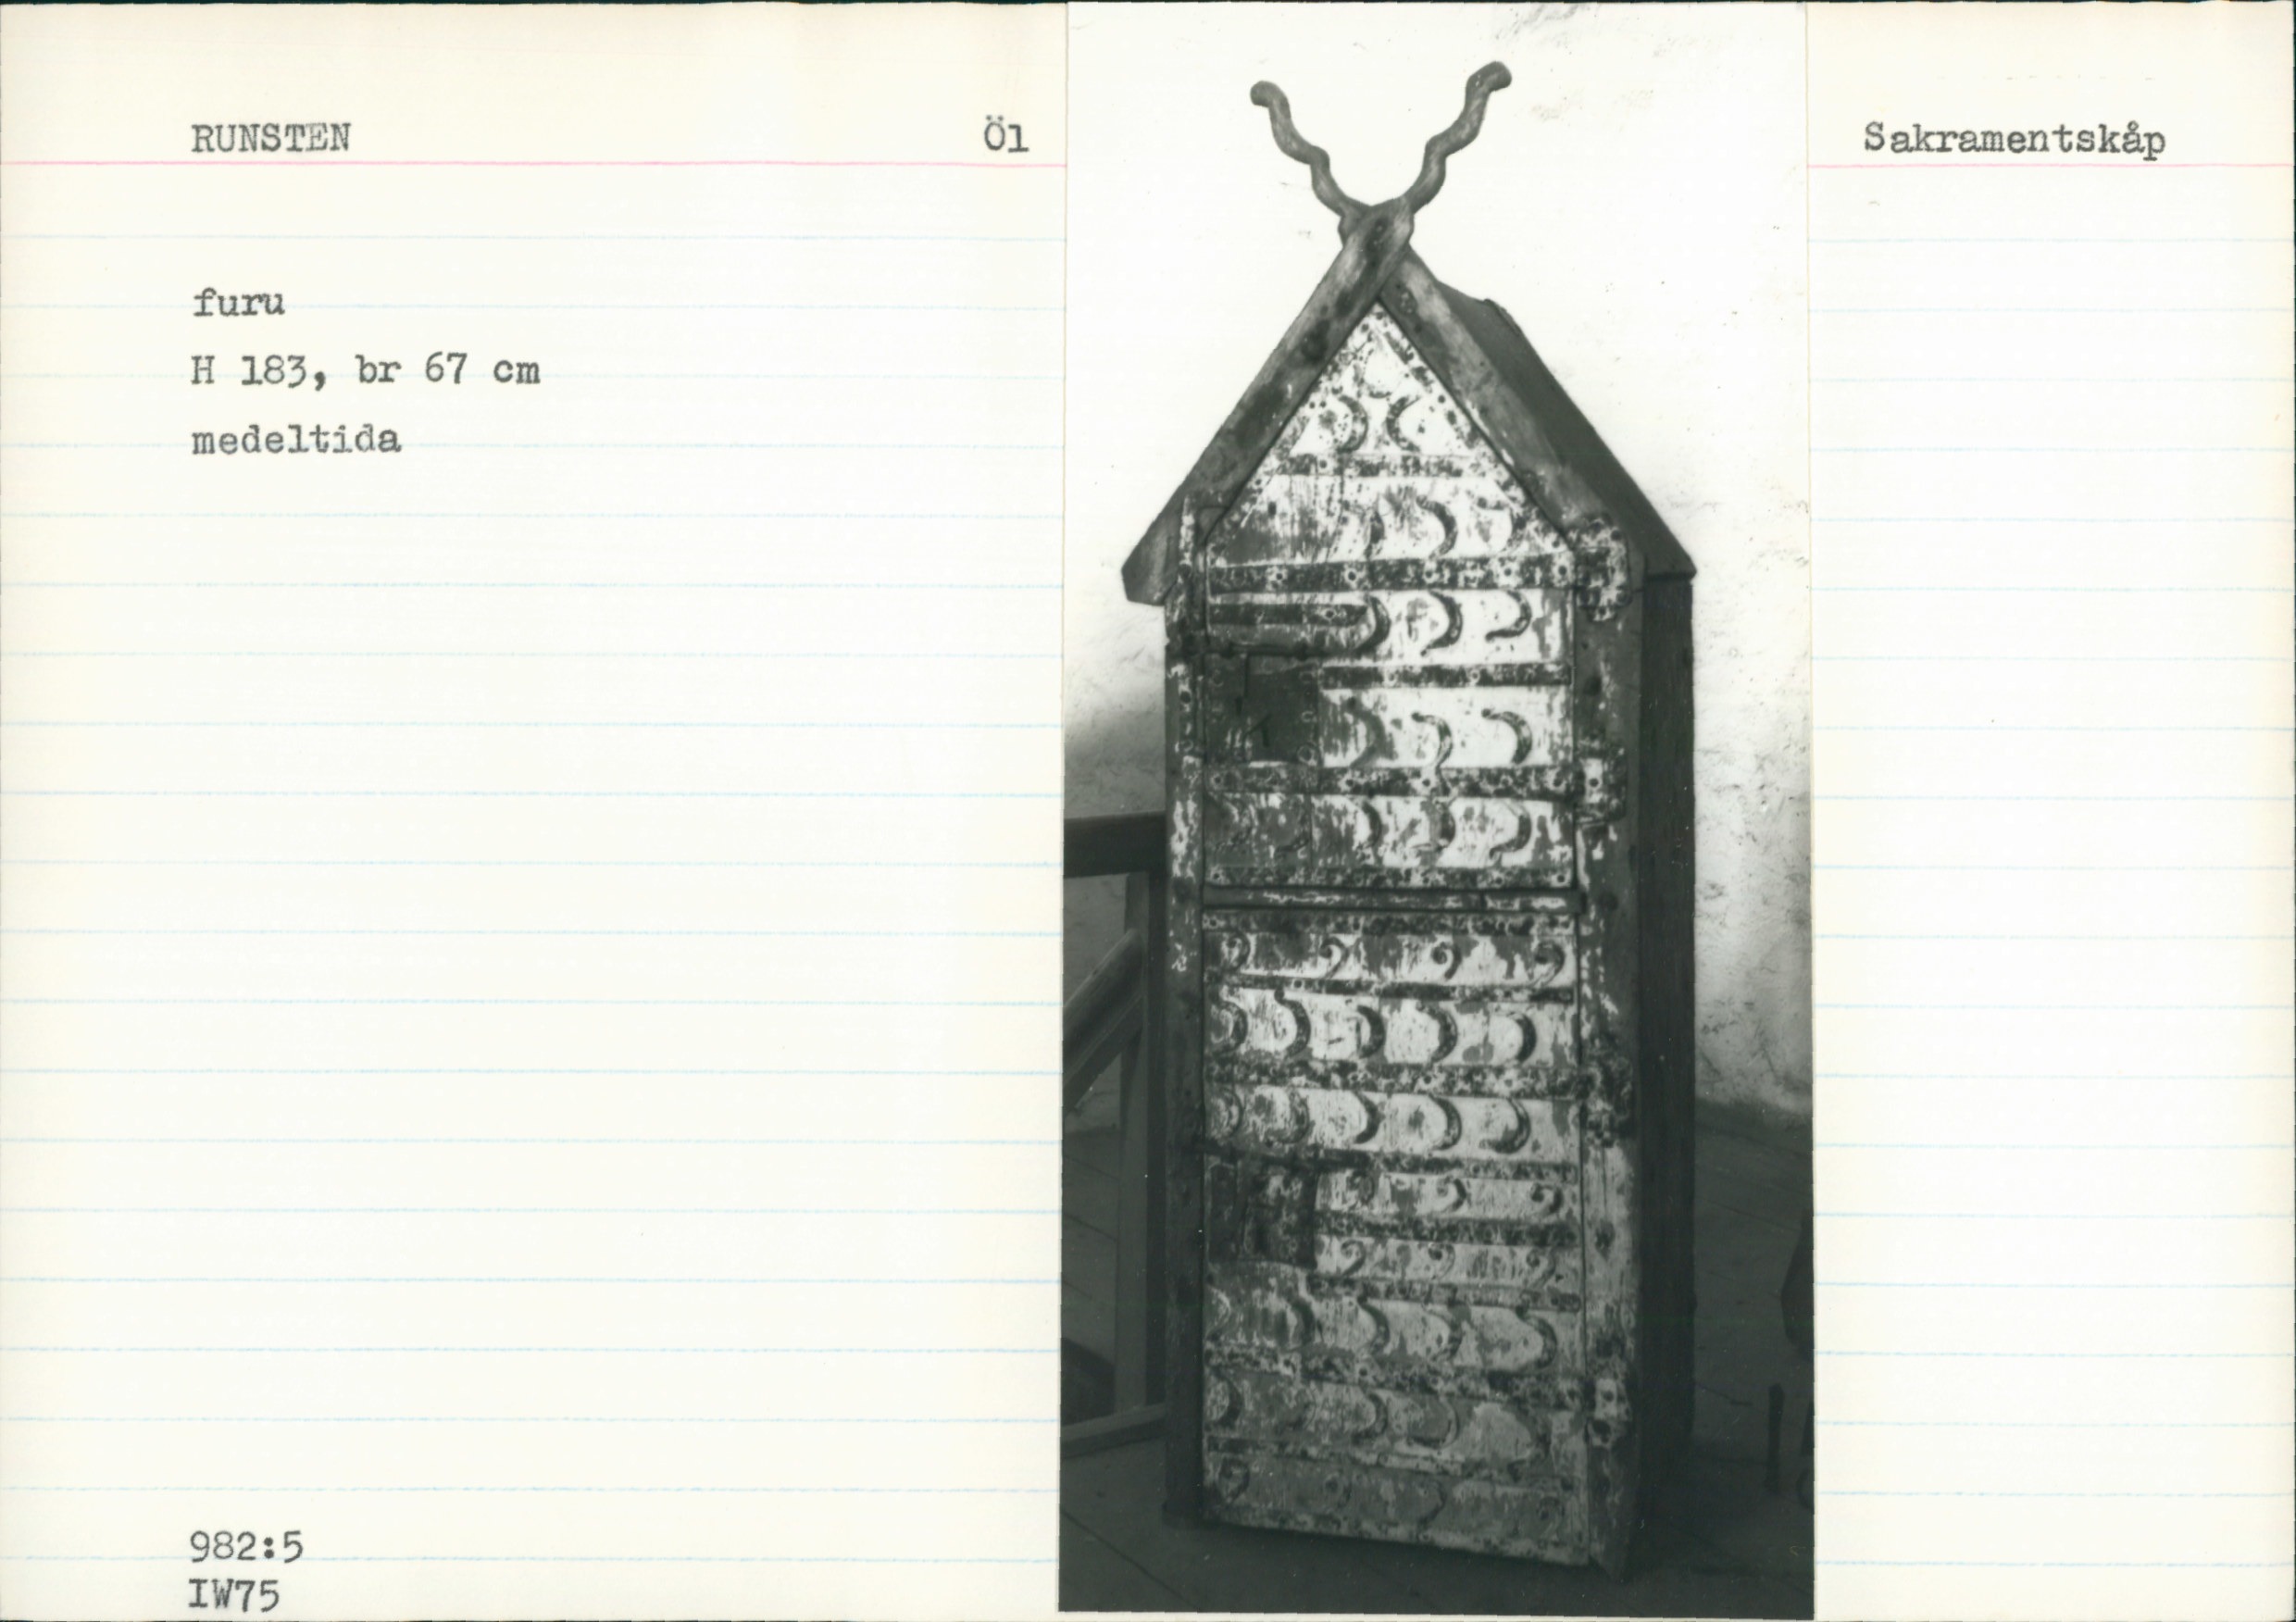 RUNSTEN Öl Sakramentskåp
furu
H 183, br 67 cm
medeltida
982:5
IW75